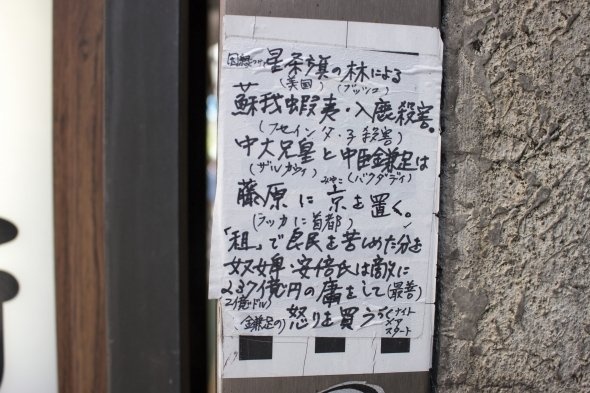 星条旗の林による
(美国) (ブッシュ)
蘇我蝦夷・入鹿殺害。
(フセイン父・子殺害)
中大兄皇と中臣鎌足は
(ザルカウィ) (バクダディ)
藤原に京を置く。
みやこ
(ラッカに首都)
「租」で良民を苦しめた分を
奴婢・安倍氏は敵に
237億円の庸をして(最善)
2億ドル
(鎌足の)怒りを買う
ナイト
メア
スタート